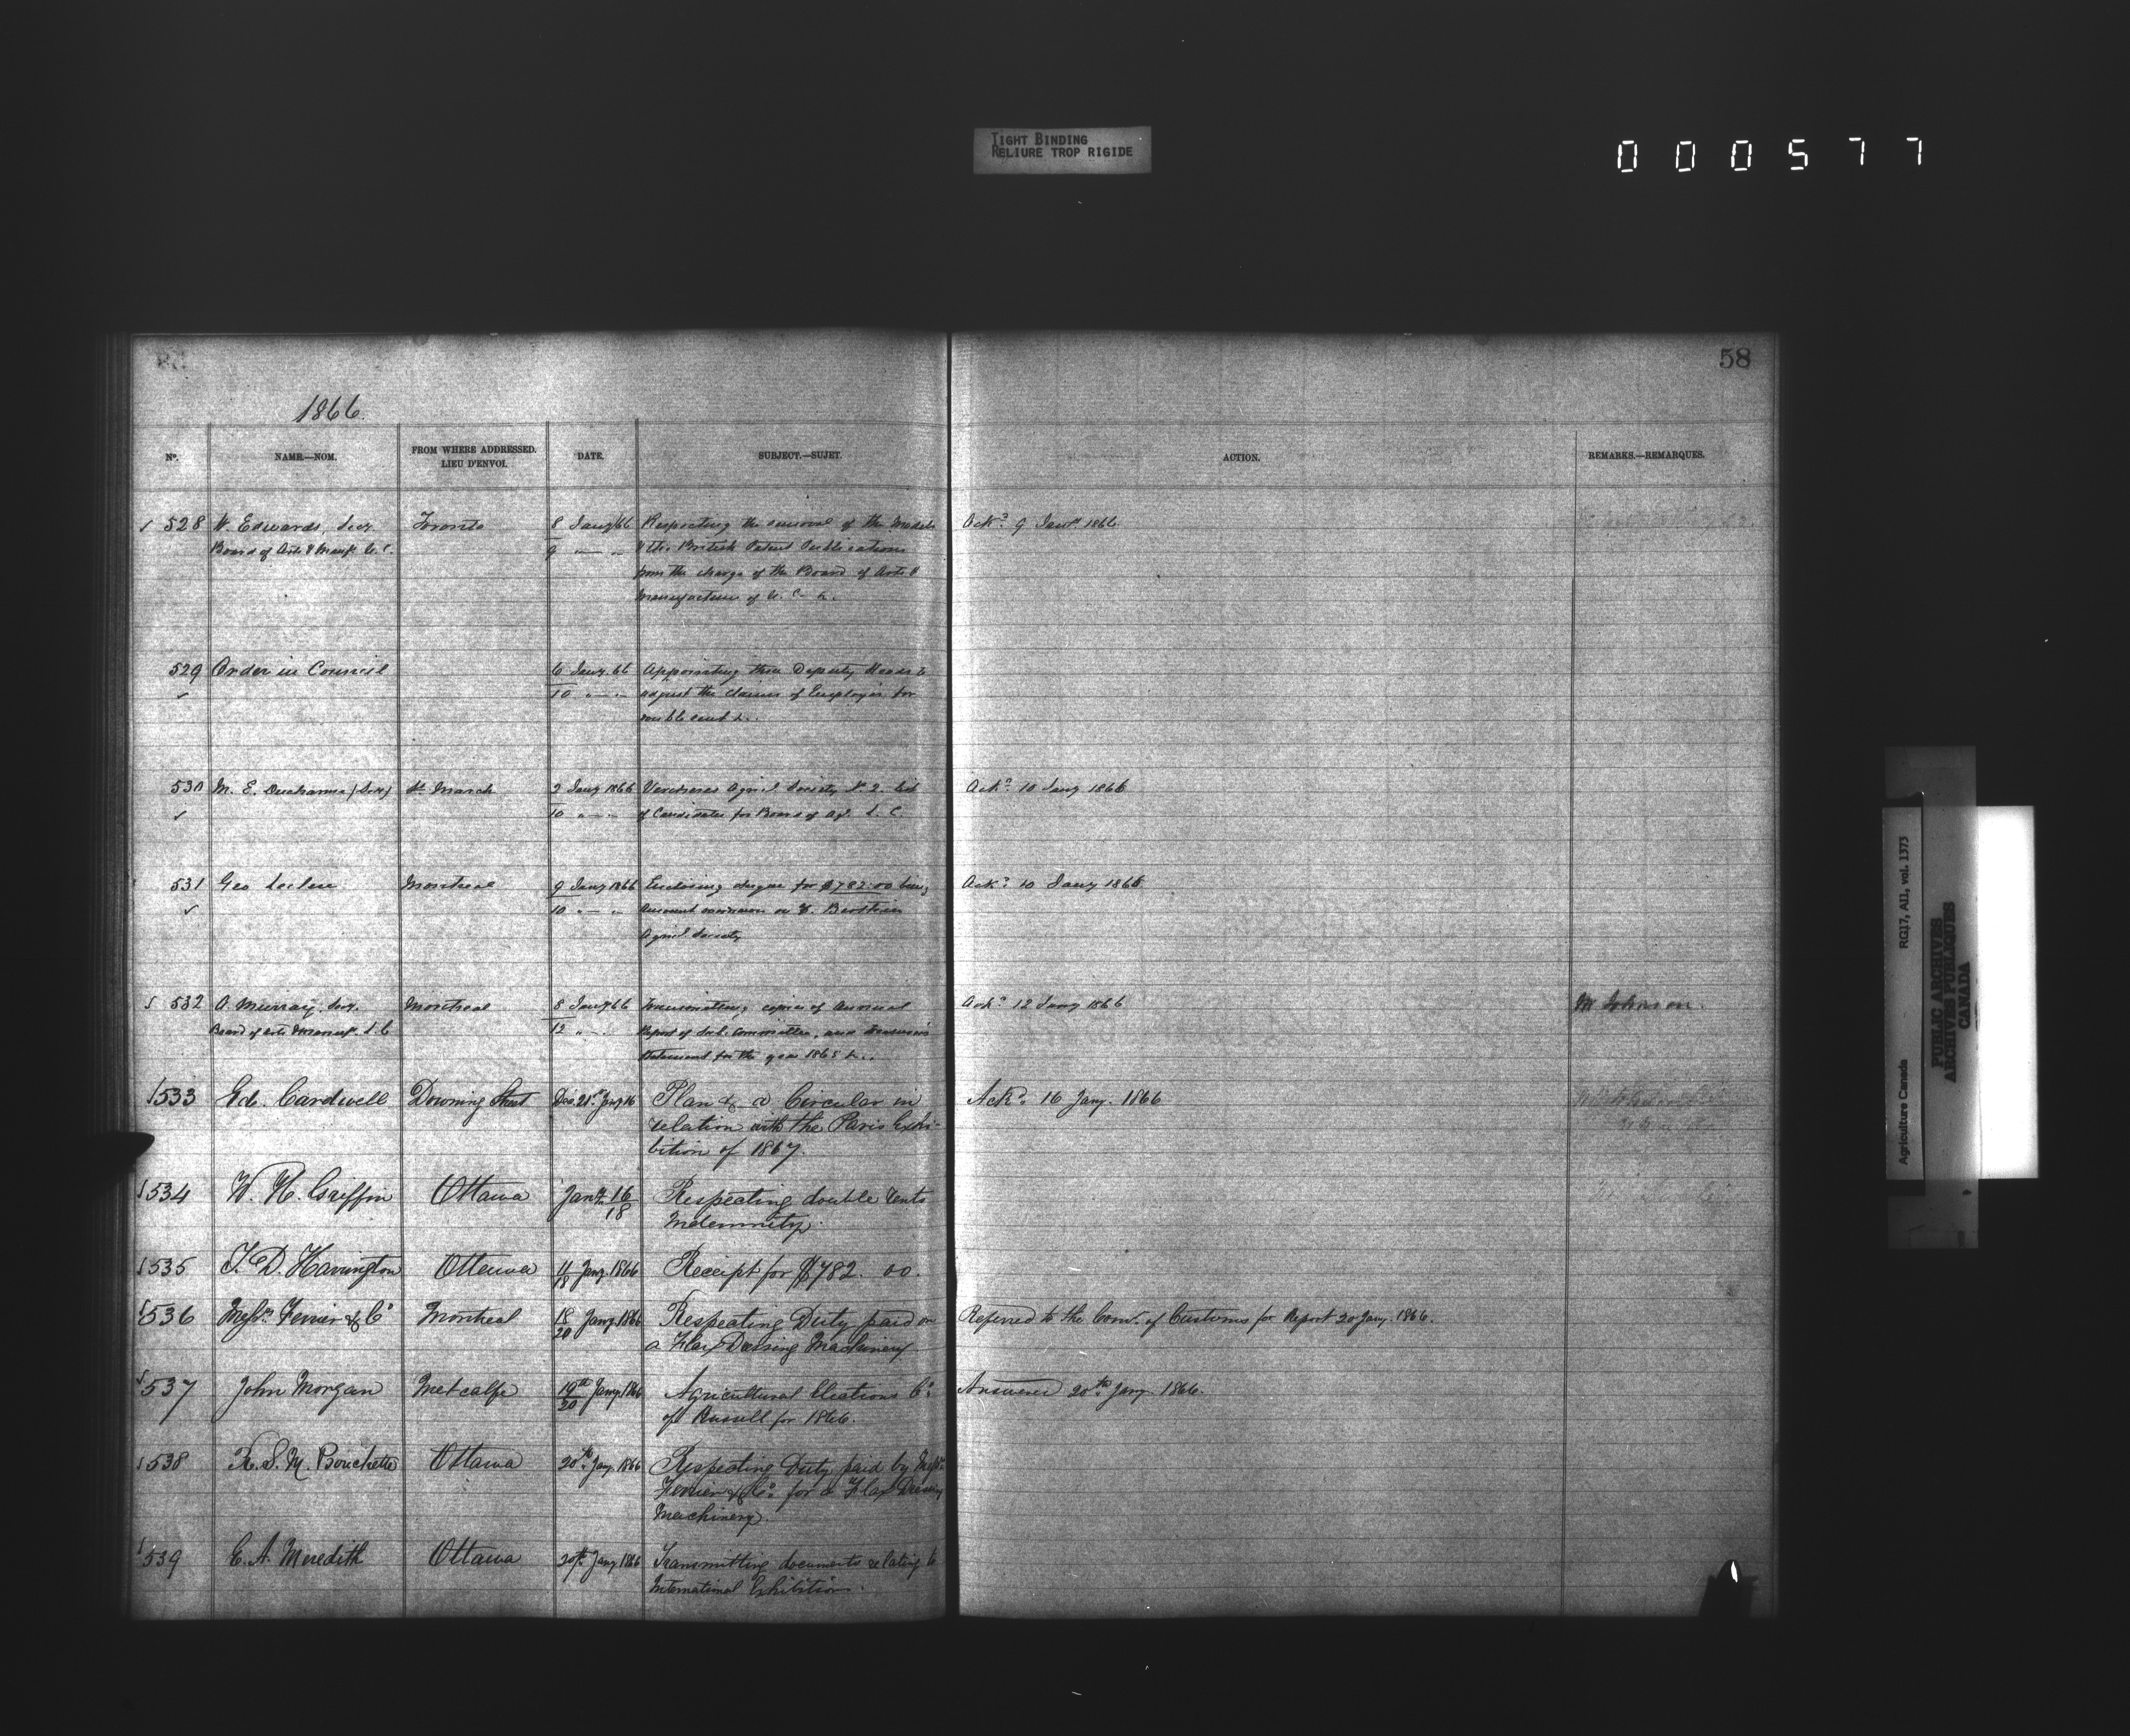 TIGHT BINDING
RELIURE TROP RIGIDE
000577
58
1866.
Nº.
NAME.—NOM.
FROM WHERE ADDRESSED.
LIEU D'ENVOI.
DATE.
SUBJECT.—SUJET.
ACTION.
REMARKS.—REMARQUES.
528 W. Edwards, Secy. Toronto 8 Jany/66 Respecting the removal of the Models Ackd. 9 Jany. 1866
Board of Arts & Manufs. U.C. 9 " — " & the British Patent Publications
from the charge of the Board of Arts &
Manufactures of U.C. &.
529 Order in Council 6 Jany. 66 Appointing three Deputy Heads to
10 " — " adjust the claims of Employés for
double rent &..
530 M. E. Ducharme (Sec) St. March 2 Jany 1866 Verchères Agricl. Society No. 2. List Ackd. 10 Jany 1866
10 " — " of Candidates for Board of Agl. L. C.
531 Geo Leclere Montreal 9 Jany 1866 Enclosing cheque for $782.00 being Ackd. 10 Jany 1866
10 " — " Amount
Agricl. Society
532 A. Murray, Secy. Montreal 8 Jany/66 Transmitting copies of Annual Ackd. 12 Jany 1866 Mr Johnson.
Board of Arts & Manufs. L.C 12 " — " Report of Sub. Committee, and Treasurer's
Statement for the year 1865 &..
533 Ed. Cardwell Downing Street Dec. 21st. Jany 16 Plan & a Circular in Ackd. 16 Jany. 1866
relation with the Paris Exhi-
bition of 1867.
534 W. H. Griffin Ottawa Jany. 16 Respecting double rents
18 Indemnity.
535 T. D. Harrington Ottawa 11 Jany. 1866 Receipt for $782. 00.
18
536 Messrs. Ferrier & Co Montreal 18 Jany. 1866 Respecting Duty paid on Referred to the Comr. of Customs for Report 20 Jany. 1866.
20 a Flax Dressing Machinery
537 John Morgan Metcalfe 19th Jany. 1866 Agricultural Elections Co. Answered 20th. Jany. 1866.
20 of Russell for 1866.
538 R. S. M. Bouchette Ottawa 20th. Jany. 1866 Respecting Duty paid by Messrs.
Ferrier & Co. for a Flax Dressing
Machinery.
539 E. A. Meredith Ottawa 20th. Jany 1866 Transmitting documents relating to
International Exhibition.
Agriculture Canada RG17, AI1, vol. 1373
PUBLIC ARCHIVES
ARCHIVES PUBLIQUES
CANADA